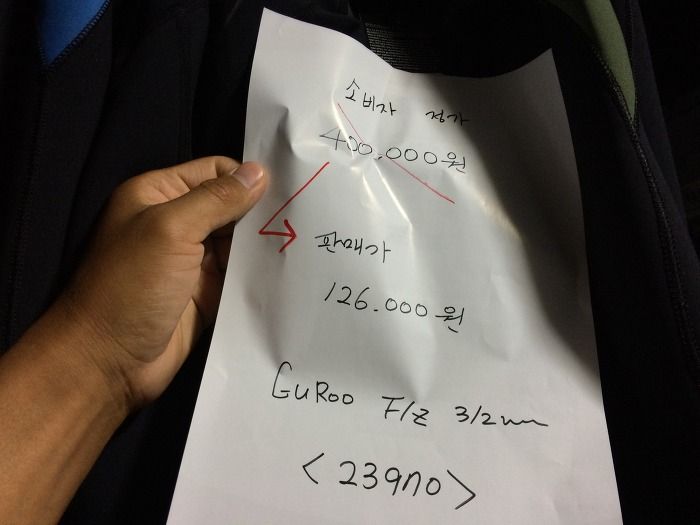 소비자 정가
400.000원
판매가
126.000원
GuRoo F/Z 3/2mm
<239no>